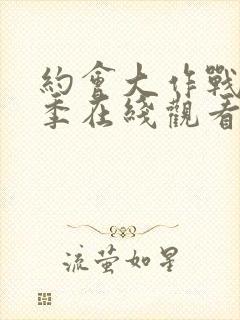 約會大作戰
季在綫觀看
流萤如星